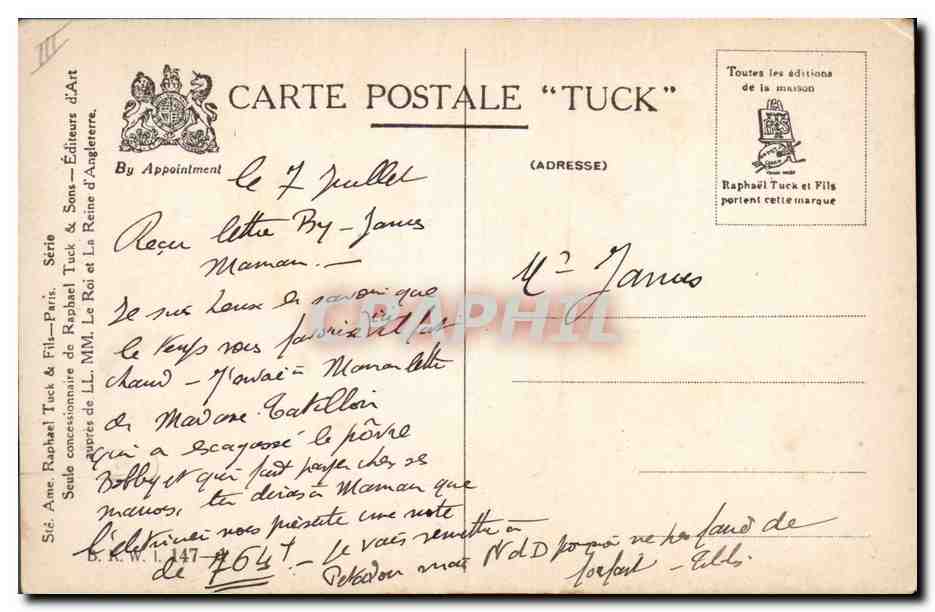 III
Sté. Ame. Raphael Tuck & Fils—Paris. Série
Seule concessionnaire de Raphael Tuck & Sons—Éditeurs d'Art
auprès de LL. MM. Le Roi et La Reine d'Angleterre.
By Appointment
CARTE POSTALE "TUCK"
(ADRESSE)
Toutes les éditions
de la maison
Raphaël Tuck et Fils
portent cette marque
le 7 Juillet
Reçu lettre By - James
Maman. —
Je suis heureux de savoir que
le temps vous favorise et il fait
chaud - J'envoie à Maman lettre
de Madame
qui a escagassé le pôvre
Bobby et qui fait payer cher ses
tu diras à Maman que
l'électricien vous présente une note
de 764f - je vais remettre à
mais N d D pas de
forfait -
Mr James
CPAPHIL
B. R. W. I. 147